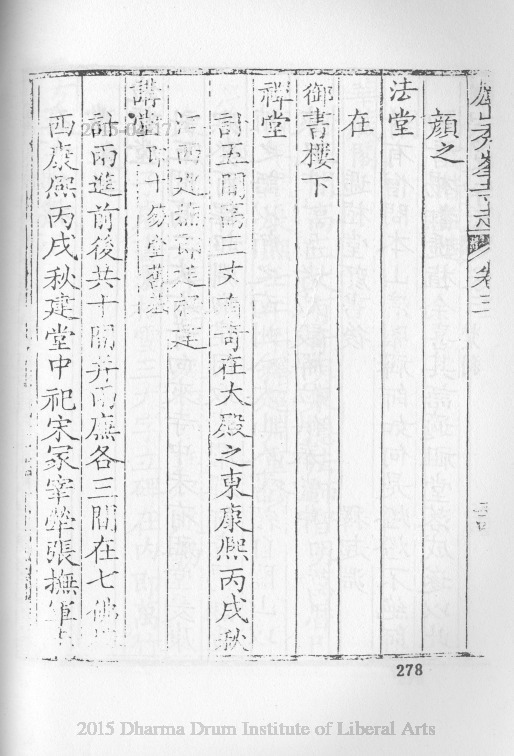 廬山秀峯寺志 卷三
顏之
法堂
在
御書樓下
禪堂
計五間高三丈有奇在大殿之東康熙丙戌秋
江西巡撫郎廷極建
講堂
計兩進前後共十間并兩廡各三間在七佛
西康熙丙戌秋建堂中祀宋冢宰犖張撫軍
278
2015 Dharma Drum Institute of Liberal Arts